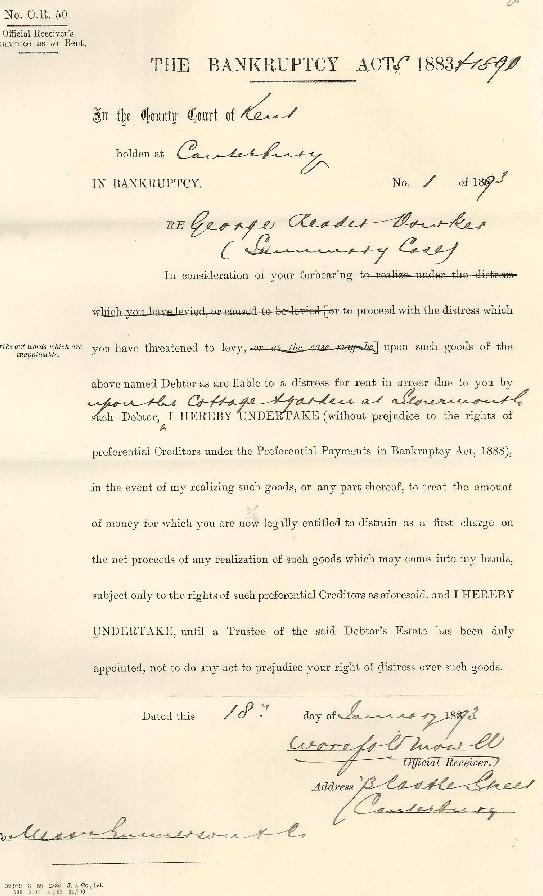 No. O.R. 50.
Official Receiver's
as to Rent.
THE BANKRUPTCY ACTS 1883 & 1890
In the County Court of Kent
holden at Canterbury
IN BANKRUPTCY. No. 1 of 1893
RE George Reader Dowker
(Summary Case)
In consideration of your forbearing to realize under the distress
which you have levied, or caused to be levied [or to proceed with the distress which
Strike out words which are
inapplicable.
you have threatened to levy, or as the case may be] upon such goods of the
above named Debtor as are liable to a distress for rent in arrear due to you by
upon the Cottage & garden at Stourmouth
such Debtor, I HEREBY UNDERTAKE (without prejudice to the rights of
preferential Creditors under the Preferential Payments in Bankruptcy Act, 1888),
in the event of my realizing such goods, or any part thereof, to treat the amount
of money for which you are now legally entitled to distrain as a first charge on
the net proceeds of any realization of such goods which may come into my hands,
subject only to the rights of such preferential Creditors as aforesaid, and I HEREBY
UNDERTAKE, until a Trustee of the said Debtor's Estate has been duly
appointed, not to do any act to prejudice your right of distress over such goods.
Dated this 18th day of January 1893
Worsfold Mowll
Official Receiver.
Address Castle Street
Canterbury
To Messrs & Co.